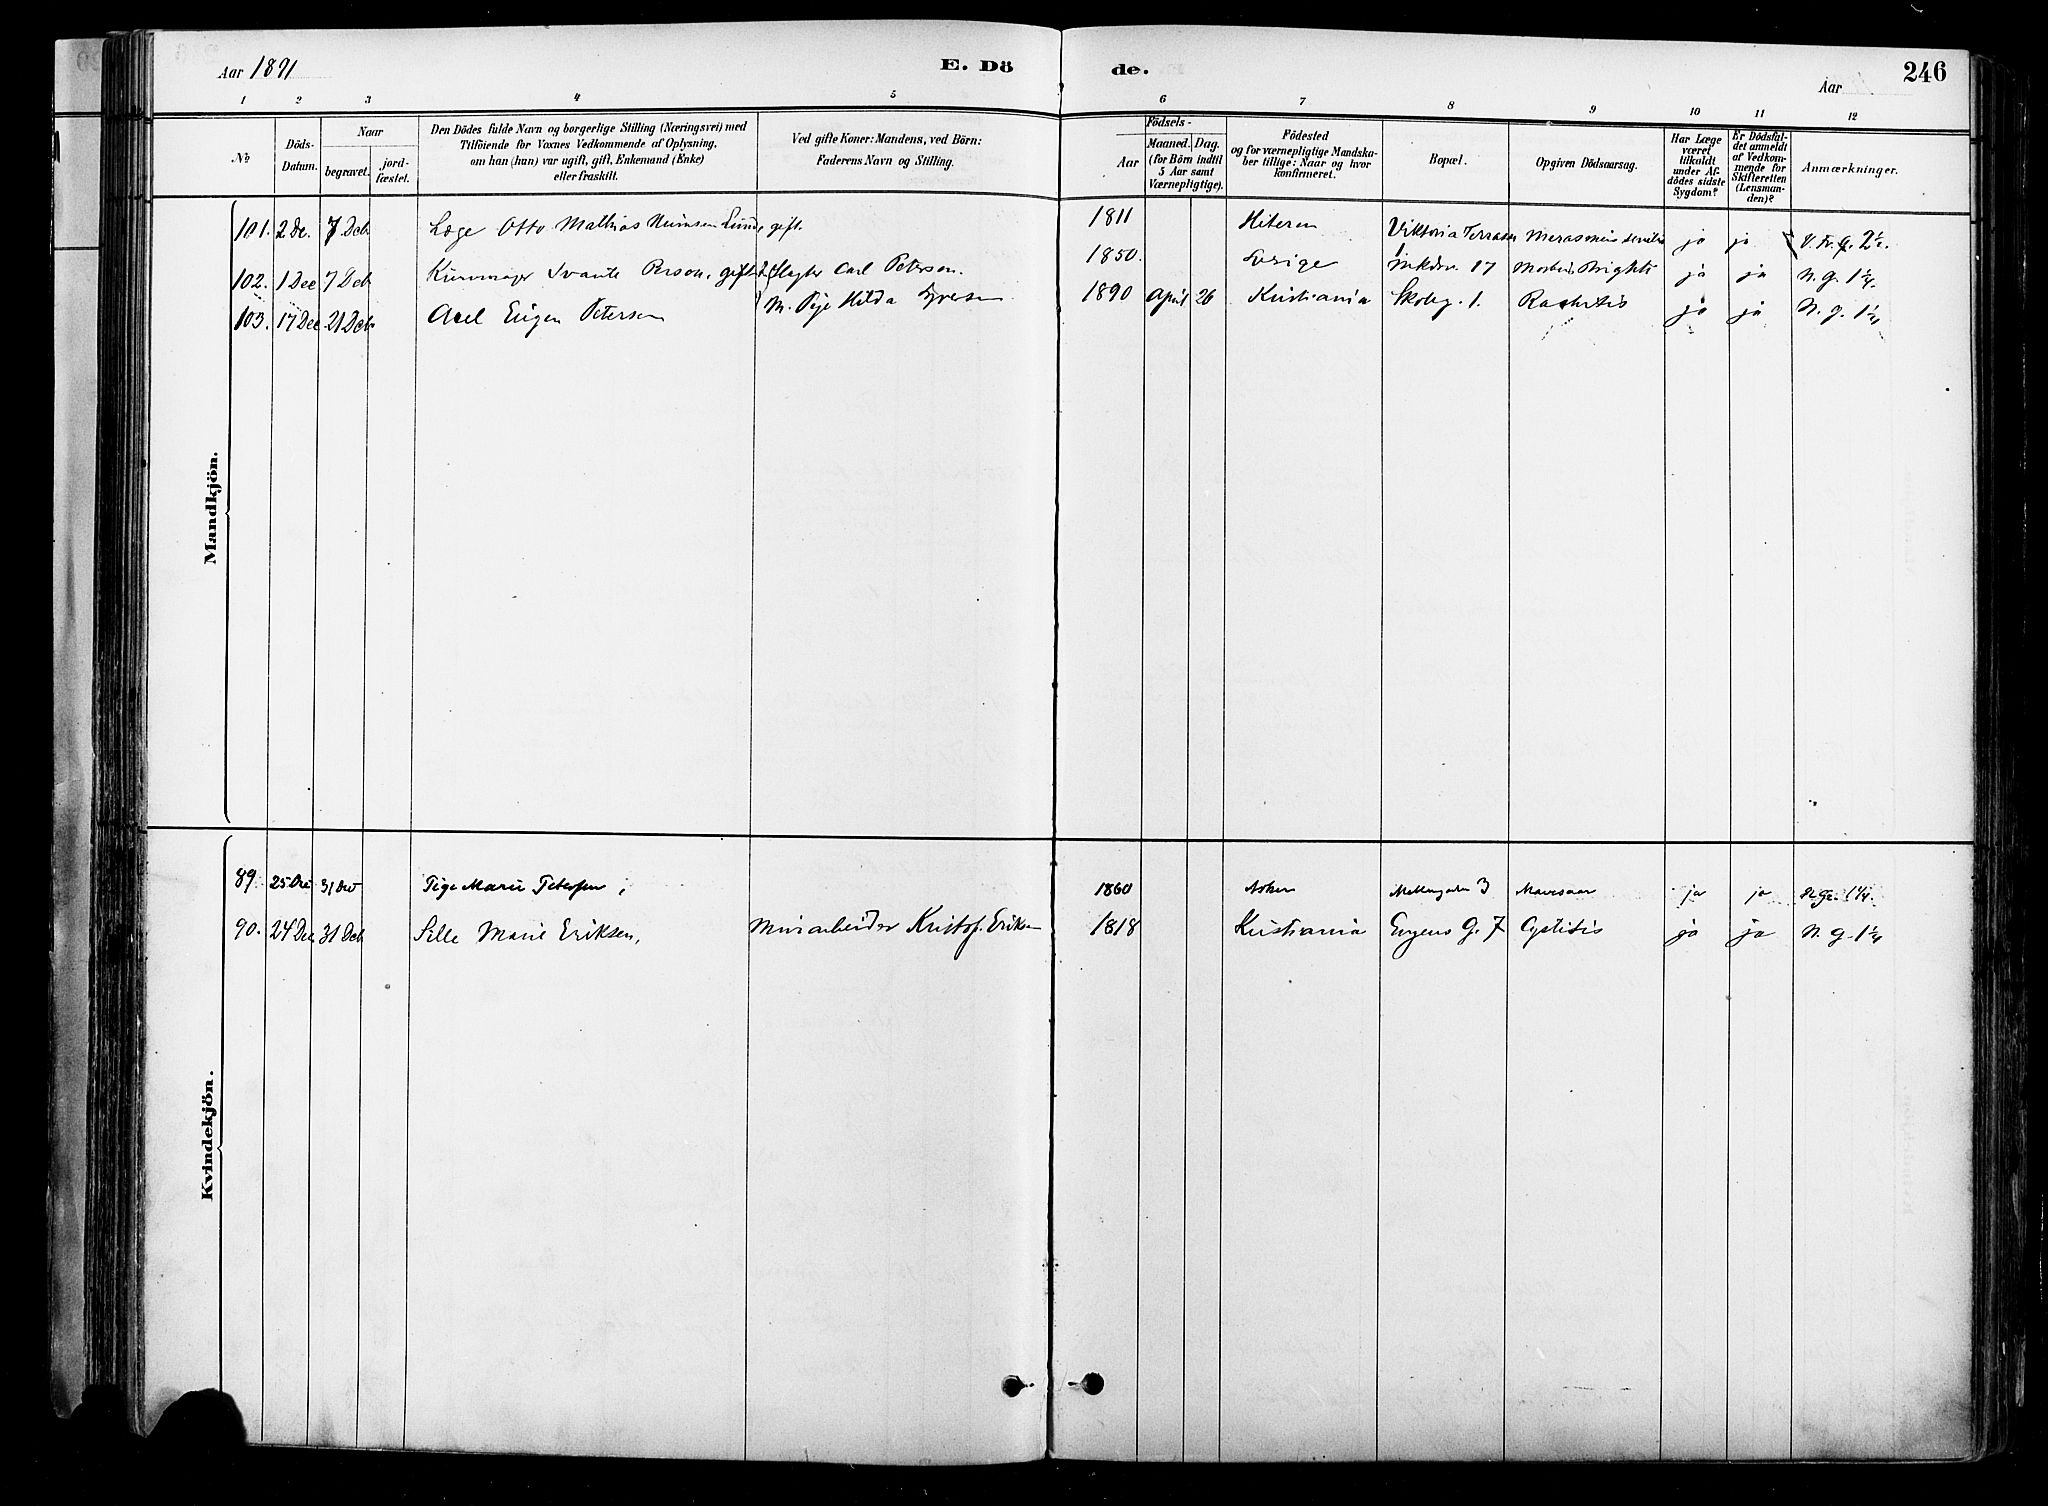 Aar 1891
E. Dö
de.
Aar
246
1 2 3 4 5 6 7 8 9 10 11 12
No
Döds-Datum.
Naar
begravet.
jord-fæstet.
Den Dödes fulde Navn og borgerlige Stilling (Næringsvei) med
Tilföiende for Voxnes Vedkommende af Oplysning,
om han (hun) var ugift, gift, Enkemand (Enke)
eller fraskilt.
Ved gifte Koner: Mandens, ved Börn:
Faderens Navn og Stilling.
Födsels-
Aar
Maaned. Dag.
(for Börn indtil
5 Aar samt
Værnepligtige).
Födested
og for værnepligtige Mandska-
ber tillige: Naar og hvor
konfirmeret.
Bopæl.
Opgiven Dödsaarsag.
Har Læge
været
tilkaldt
under Af-
dödes sidste
Sygdom?
Er Dödsfal-
det anmeldt
af Vedkom-
mende for
Skifteretten
(Lensman-
den)?
Anmærkninger.
Mandkjön.
101. 2 De. 7 Deb Læge Otto Mathias Lund gift. 1811 Hiteren Viktoria Terrasse ja ja V. Fr. G. 2½.
102. 1 Dec 7 Deb Svante Person, gift 1850. Sverige 17 Morbus Brightii ja ja N. g. 1¼.
Slagter Carl Petersen.
103. 17 Dec 21 Deb Axel Eugen Petersen M. Pige Hilda 1890 April 26 Kristiania Skoleg. 1. Rachitis ja ja N. g. 1¼
Kvindekjön.
89. 25 Dec 31 Dec Pige Marie Petersen, 1860 Asker 3 Mavesaar ja ja N. g. 1¼.
90. 24 Dec 31 Deb Sille Marie Eriksen, Murarbeider Kristof. Eriksen 1818 Kristiania G. 7 Cystitis ja ja N. g. 1¼